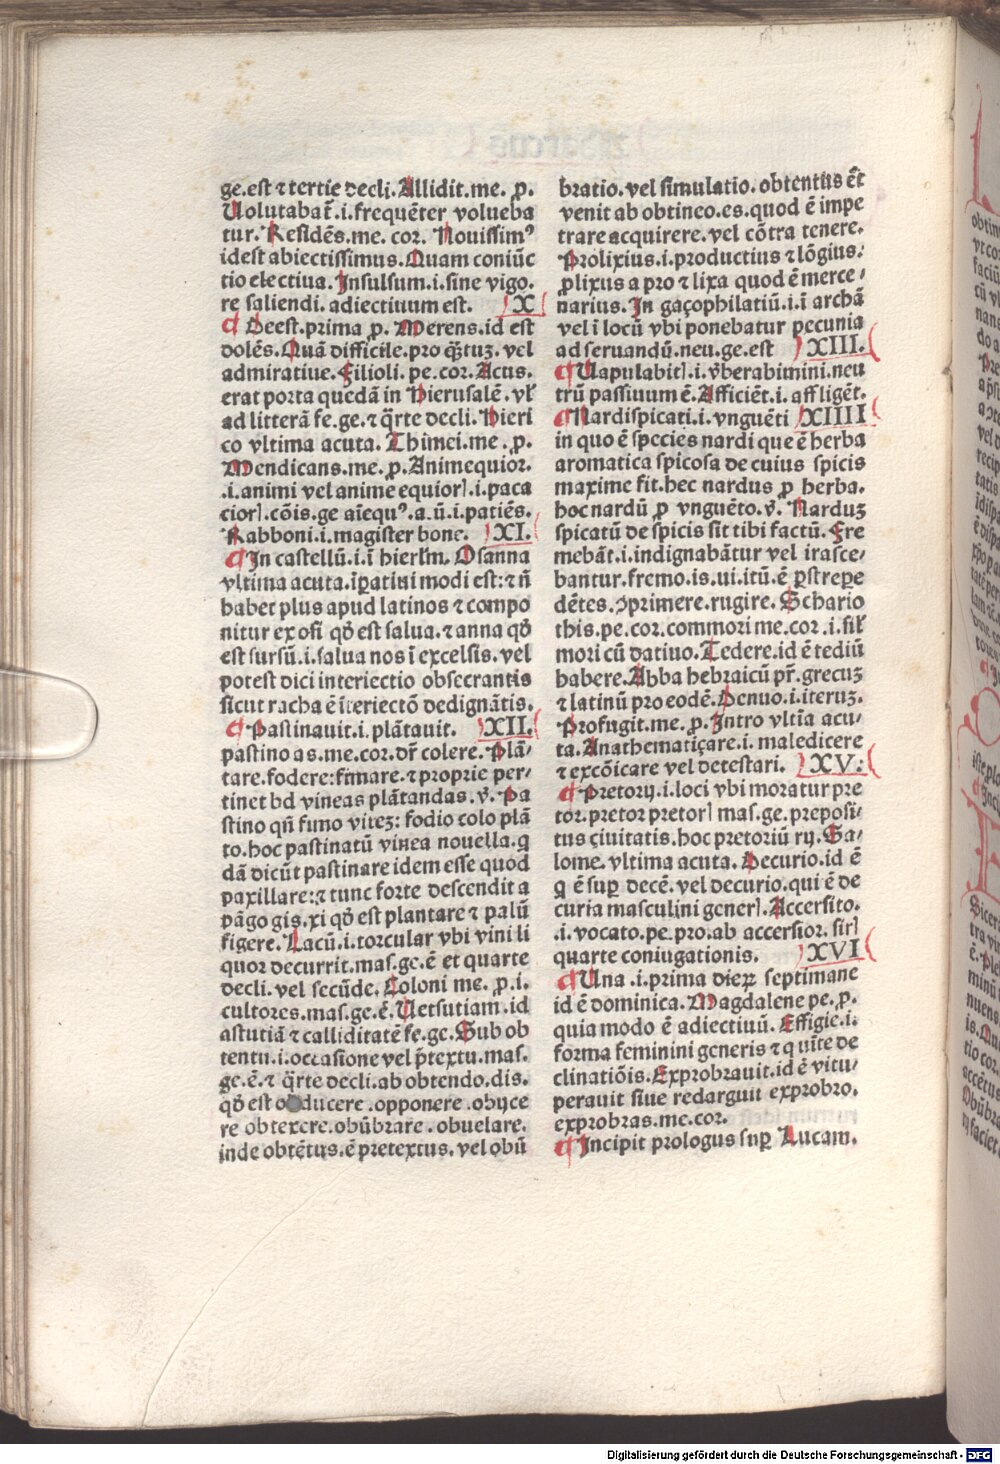 ge.est ⁊ tertie decli. Allidit.me. ꝓ.
Uolutabat̄.i.frequēter volueba
tur. Residēs.me. cor. Nouissimꝰ
idest abiectissimus. Quam coniūc
tio electiua. Insulsum.i.sine vigo.
re saliendi. adiectiuum est. X
¶ Deest.prima ꝓ. Merens.id est
dolēs. Quā difficile.pro q̄ꝫtuꝫ. vel
admiratiue. Filioli. pe.cor. Acus.
erat porta quedā in Hierusalē. vl̓
ad litterā fe.ge.⁊ q̄rte decli. Hieri
co vltima acuta. Thimei.me. ꝓ.
Mendicans.me. ꝓ. Animequior.
.i.animi vel anime equiorꝭ.i.paca
ciorꝭ.cōis.ge aīequꝰ.a.ū.i.patiēs.
Rabboni.i.magister bone. XI.
¶ In castellū.i.ī hierl̄m. Osanna
vltima acuta.īꝑatiui modi est: ⁊ n̄
habet plus apud latinos ⁊ compo
nitur ex osi qd̄ est salua. ⁊ anna qd̄
est sursū.i.salua nos ī excelsis. vel
potest dici interiectio obsecrantis
sicut racha ē īteriectō dedignātis.
¶ Pastinauit.i.plātauit. XII.
pastino as.me.cor.dr̄ colere. Plā/
tare.fodere: firmare.⁊ proprie per/
tinet bd vineas plātandas.v̄. Pa
stino qn̄ funo viteꝫ: fodio colo plā
to.hoc pastinatū vinea nouella.q
dā dicūt pastinare idem esse quod
paxillare:⁊ tunc forte descendit a
pāgo gis.xi qd̄ est plantare ⁊ palū
figere. Lacū.i.torcular vbi vini li
quor decurrit.mas.ge.ē et quarte
decli. vel secūde. Coloni me. ꝓ.i.
cultores.mas.ge.ē. Uersutiam.id
astutiā ⁊ calliditatē fe.ge. Sub ob
tentu.i.occasione vel p̄textu.mas.
ge.ē.⁊ q̄rte decli.ab obtendo.dis.
qd̄ est obducere .opponere .obijce
re obtexere.obūbrare .obuelare.
inde obtētus.ē pretextus. vel obū
bratio. vel simulatio. obtentus ēt
venit ab obtineo.es.quod ē impe
trare acquirere. vel cōtra tenere.
Prolixius.i.productius ⁊ lōgius.
ꝓlixus a pro ⁊ lixa quod ē merce/
narius. In gaçophilatiū.i.ī archā
vel ī locū vbi ponebatur pecunia
ad seruandū.neu.ge.est XIII.
¶ Uapulabitꝭ.i.v̄berabimini.neu
trū passiuum ē. Afficiēt.i. affligēt.
¶ Nardispicati.i.vnguēti XIIII
in quo ē species nardi que ē herba
aromatica spicosa de cuius spicis
maxime fit.hec nardus ꝓ herba.
hoc nardū ꝓ vnguēto.v̄. Narduꝫ
spicatū de spicis sit tibi factū. Fre
mebāt.i.indignabātur vel irasce/
bantur.fremo.is.ui.itū.ē ꝑstrepere
dētes.ꝯprimere.rugire. Schario
this.pe.cor.commori me.cor.i.sil̓
mori cū datiuo. Tedere.id ē tediū
habere. Abba hebraicū pr̄.grecuꝫ
⁊ latinū pro eodē. Denuo.i.iteruꝫ.
Profugit.me. ꝓ. Intro vltīa acu/
ta. Anathematiçare.i. maledicere
⁊ excōicare vel detestari. XV.
¶ Pretorij.i.loci vbi moratur pre
tor.pretor pretorꝭ mas.ge.preposi/
tus çiuitatis.hoc pretoriū rij. Sa/
lome. vltima acuta. Decurio.id ē
q̄ ē suꝑ decē. vel decurio.qui ē de
curia masculini generꝭ. Accersito.
.i. vocato.pe.pro.ab accersior. sirꝭ
quarte coniugationis. XVI
¶ Una .i.prima dieꝝ septimane
id ē dominica. Magdalene pe. ꝓ.
quia modo ē adiectiuū. Effigie.i.
forma feminini generis ⁊ quīte de
clinatiōis. Exprobrauit.id ē vitu/
perauit siue redarguit exprobro.
exprobras.me.cor.
¶ Incipit prologus suꝑ Lucam.
Digitalisierung gefördert durch die Deutsche Forschungsgemeinschaft - DFG